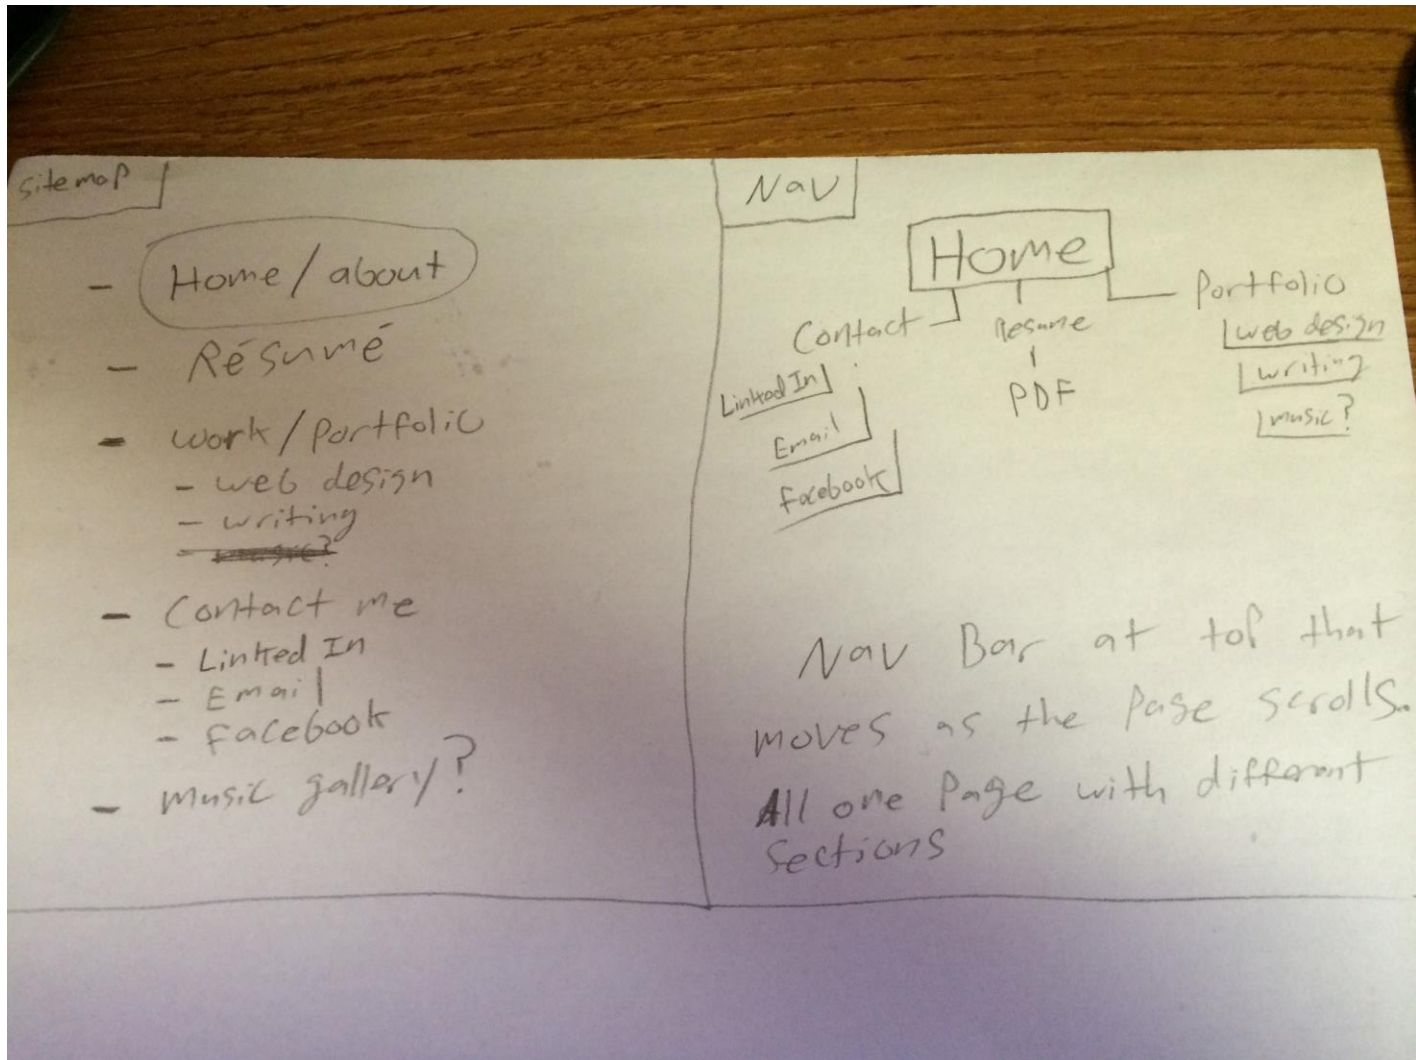 sitemap
- Home/about
- Résumé
- work/portfolio
- web design
- writing
- music?
- Contact me
- Linked In
- Email
- facebook
- music gallery?
Nav
Home
Contact
Resume
Portfolio
Linked In
Email
facebook
PDF
web design
writing
music?
Nav Bar at top that
moves as the page scrolls.
All one page with different
sections